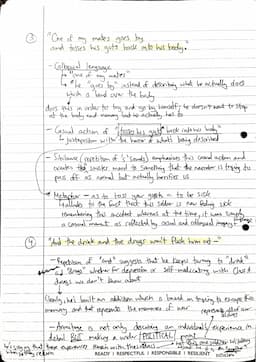 ③ "One of my mates goes by
and tosses his guts back into his body."
- Colloquial language
↳ "one of my mates"
↳ he "goes by" instead of describing what he actually does
which is bend over the body
does this in order to try and go by himself; he doesn't want to stop
at the body and memory but he actually has to
- Casual action of "tosses his guts back into his body"
↳ juxtaposition with the horror of what's being described
- Sibilance (repetition of 's' sounds) emphasises this casual action and
creates the smaller sound to something that the narrator is trying to
pass off as normal but actually horrifies us
- Metaphor - as to toss your guts = to be sick
↳ alludes to the fact that this soldier is now feeling sick
remembering this incident whereas at the time, it was simply
a casual moment as reflected by casual and offhanded imagery
④ "And the drink and the drugs won't flush him out -"
- Repetition of "and" suggests that he keeps turning to "drink"
"drugs" whether for depression or self-medicating with
drugs we don't know about
Clearly, he's built an addiction which is based on trying to escape this
memory and that represents the memories of war
- Armitage is not only describing an individual's experience in
detail BUT making a wider POLITICAL point
READY | RESPECTFUL | RESPONSIBLE | RESILIENT